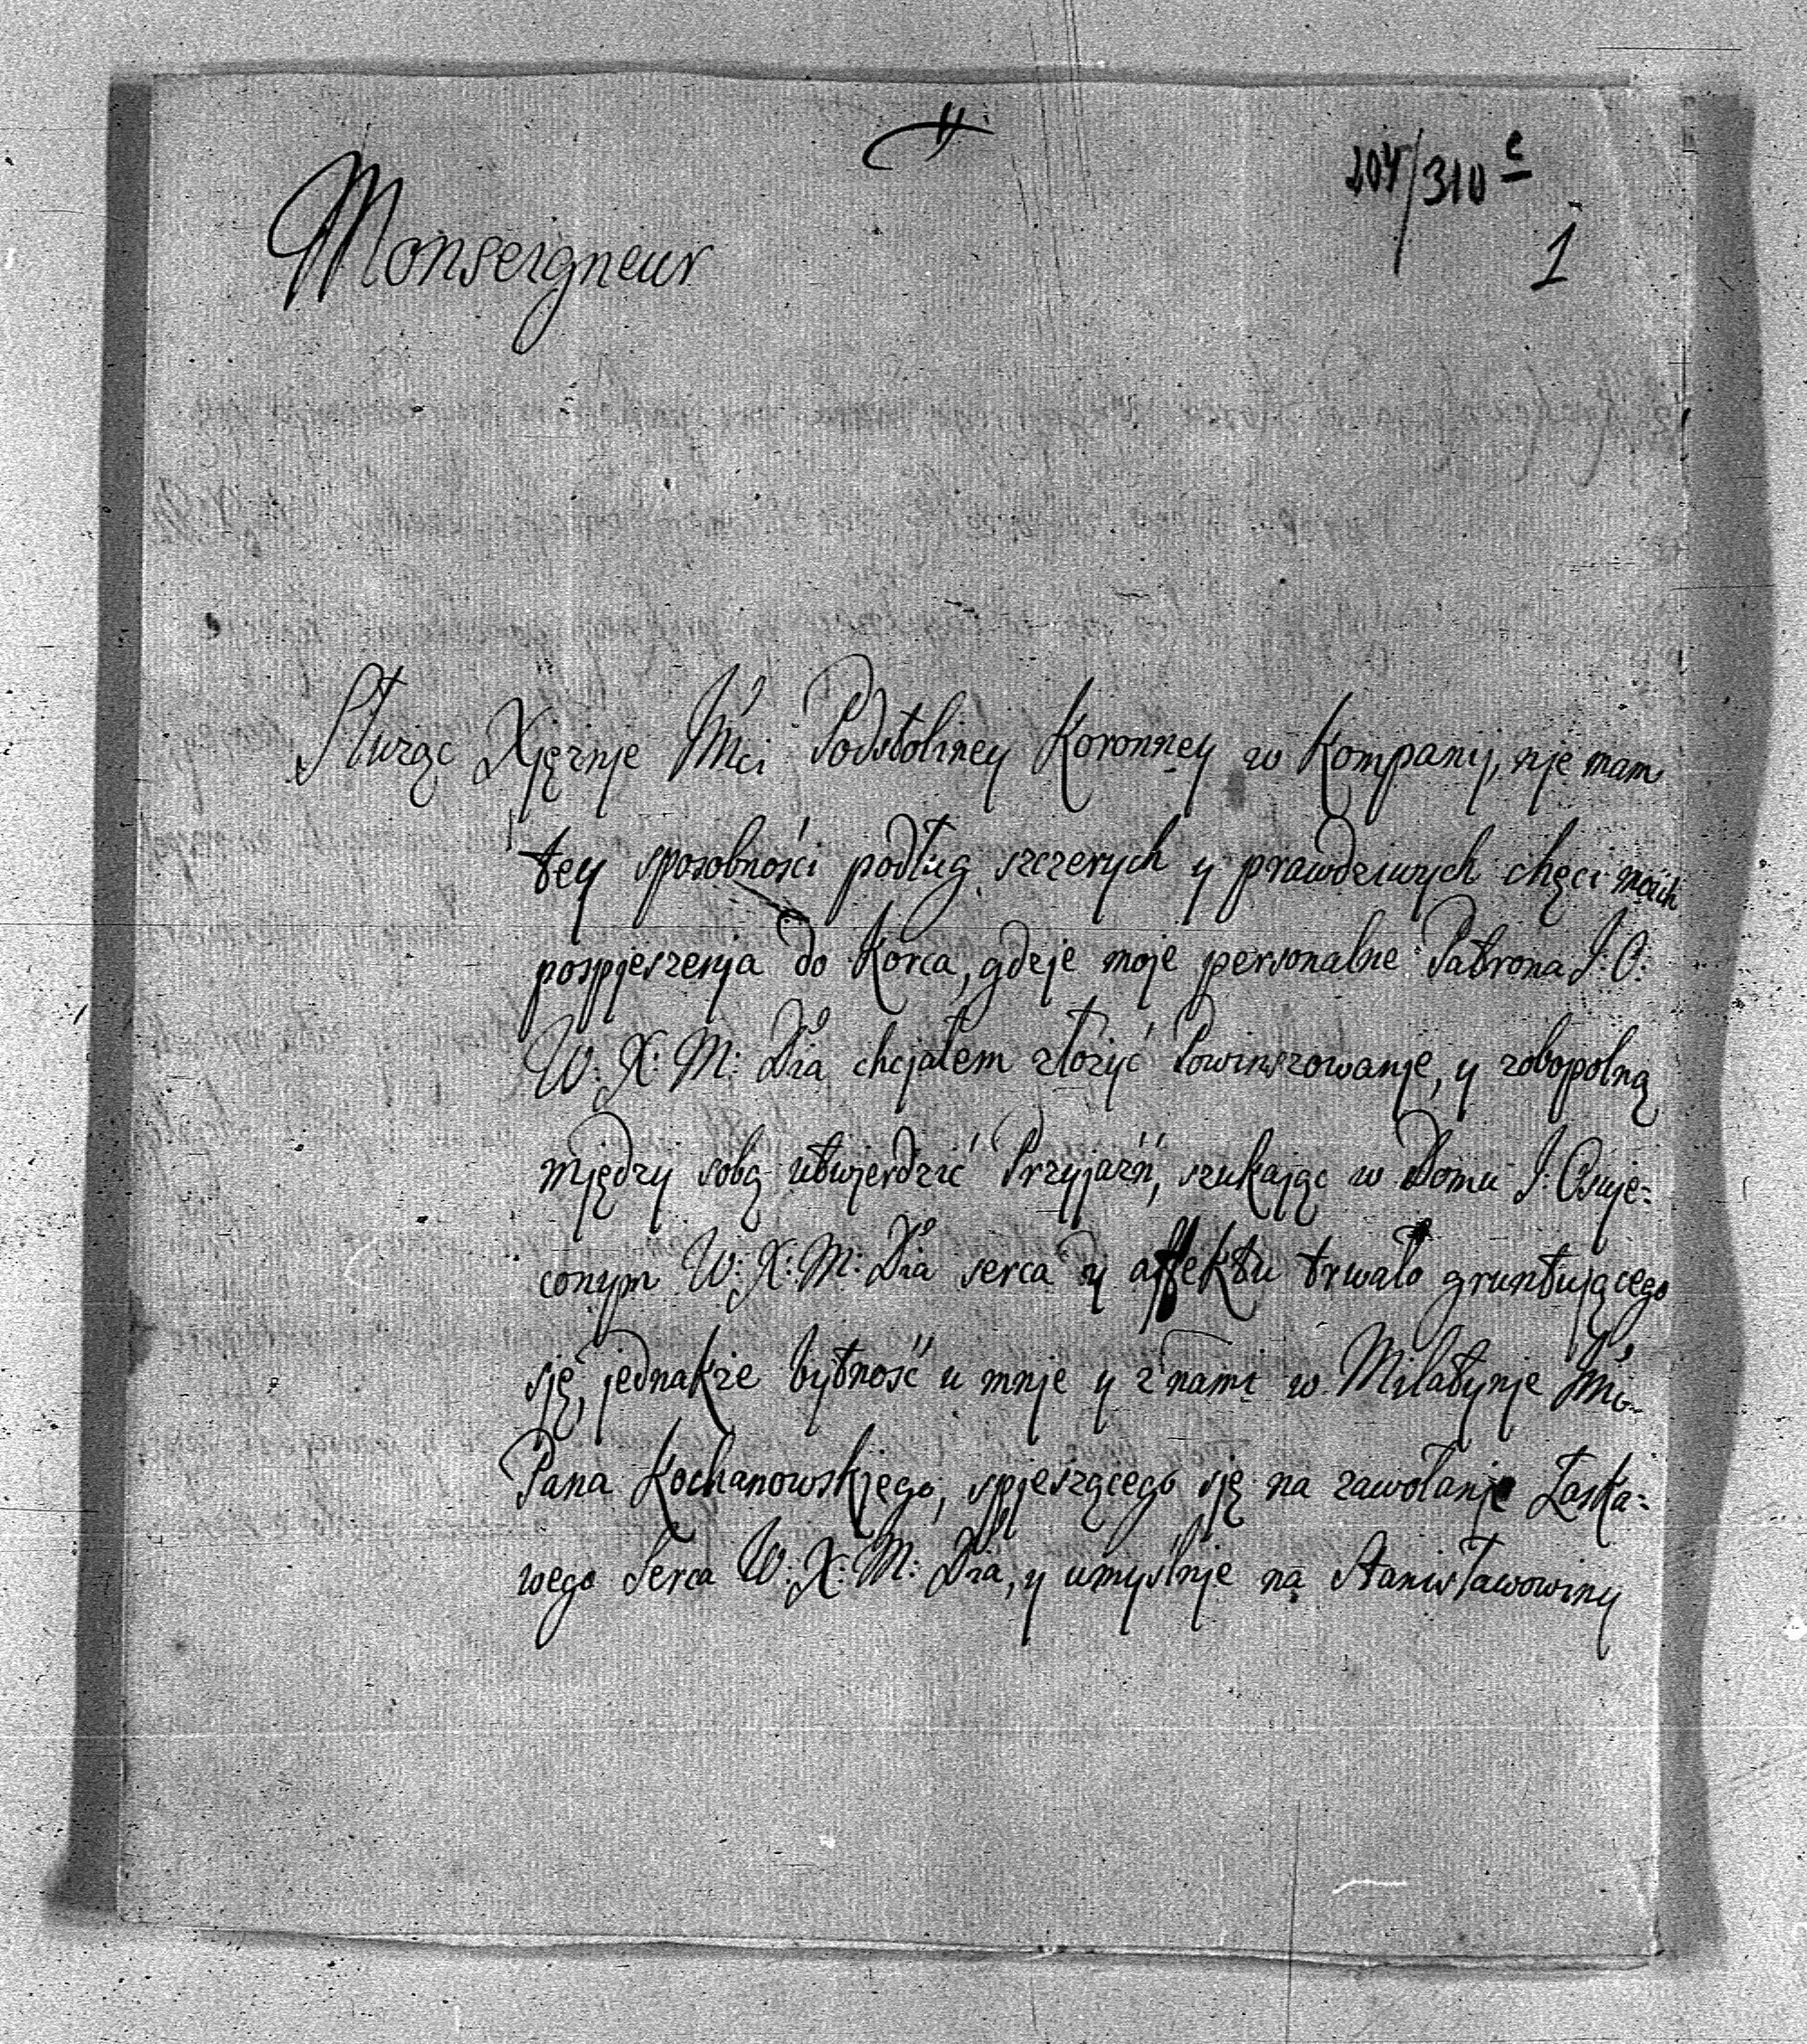 204/310 c
1
Monseigneur
Służąc Xjężnje Mci Podstoliney Koronney w Kompanij, nje mam
tey sposobności podług szczerych y prawdziwych chęci moich
pospjeszenja do Korca, gdzje moje personalne Patrona J: O:
W: X: M: Dła chcjałem złożyć Powinszowanje, y zobopolną
mjędzy sobą utwjerdzić Przyjaźń, szukając w Domu J: Oswje=
conym W: X: M: Dła serca y affektu trwało gruntującego
sję, jednakże bytność u mnje y z nami w Milatynje Mci
Pana Kochanowskjego, spjeszącego sję na zawołanje Łaska=
wego Serca W: X: M: Dła, y umyślnje na Stanisławowiny